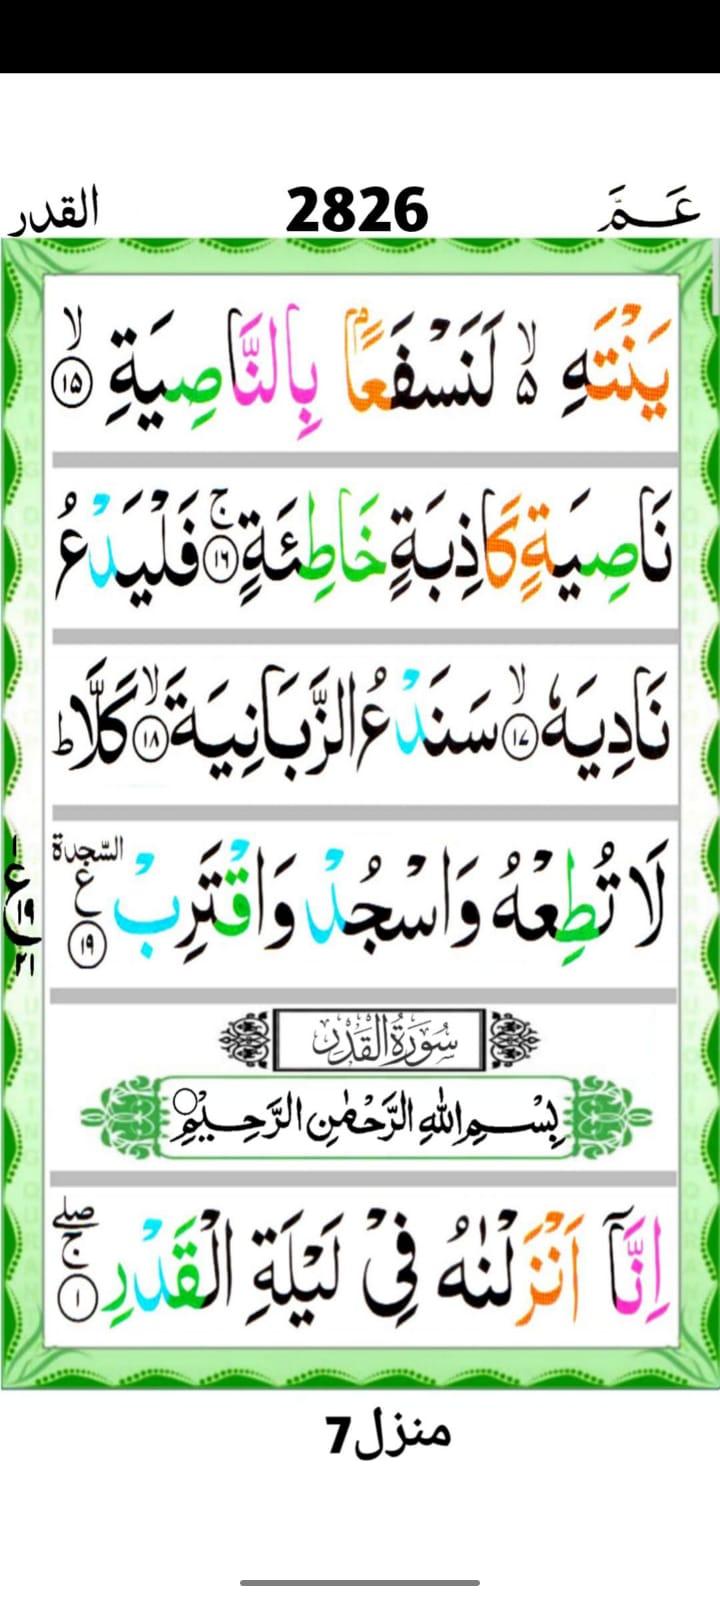 عَمَّ 2826 القدر
يَنْتَهِ ۙ۬ لَنَسْفَعًاۢ بِالنَّاصِيَةِ ۙ‏﴿۱۵﴾
نَاصِيَةٍ كَاذِبَةٍ خَاطِئَةٍ ۚ‏﴿۱۶﴾ فَلْيَدْعُ
نَادِيَهٗ ۙ‏﴿۱۷﴾ سَنَدْعُ الزَّبَانِيَةَ ۙ‏﴿۱۸﴾ كَلَّا ؕ
لَا تُطِعْهُ وَاسْجُدْ وَاقْتَرِبْ ﴿۱۹﴾ السّجدة ع
۱ ع ۱۹ ۲۱
سُوْرَةُ الْقَدْرِ
بِسْمِ اللهِ الرَّحْمٰنِ الرَّحِيْمِ
اِنَّاۤ اَنْزَلْنٰهُ فِيْ لَيْلَةِ الْقَدْرِ ۖۚ ﴿۱﴾
منزل7